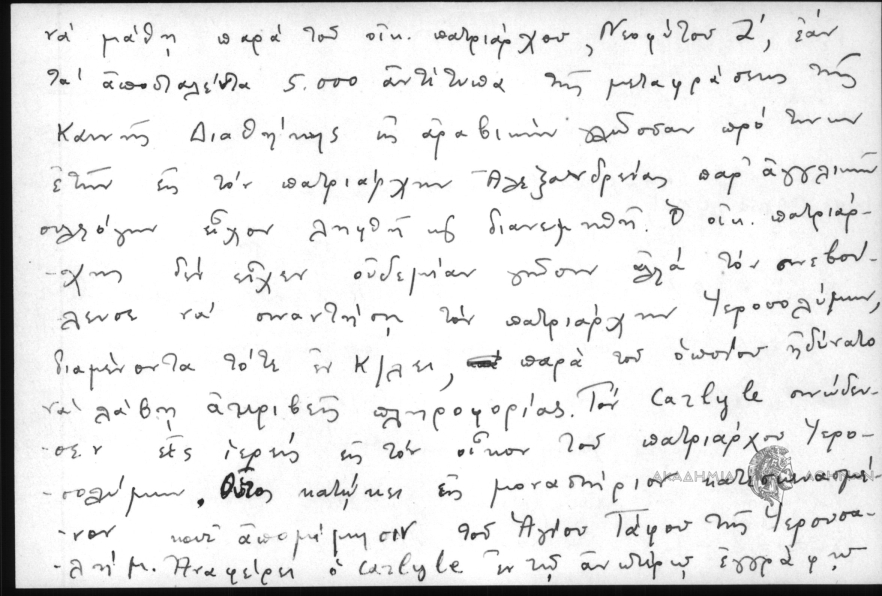 νά μάθῃ παρά τοῦ οἰκ. πατριάρχου, Νεοφύτου Ζ', ἐάν
τά ἀποσταλέντα 5.000 ἀντίτυπα τῆς μεταφράσεως τῆς
Καινῆς Διαθήκης εἰς ἀραβικήν γλῶσσαν πρό τινων
ἐτῶν εἰς τόν πατριάρχην Ἀλεξανδρείας παρ' ἀγγλικῶν
συλλόγων εἶχον ληφθῆ καί διανεμηθῆ. Ὁ οἰκ. πατριάρ-
-χης δέν εἶχεν οὐδεμίαν γνῶσιν ἀλλά τόν συνεβού-
λευσε νά συναντήσῃ τόν πατριάρχην Ἱεροσολύμων,
διαμένοντα τότε ἐν Κ/λει, παρά τοῦ ὁποίου ἠδύνατο
νά λάβῃ ἀκριβεῖς πληροφορίας. Τόν Carlyle συνώδευ-
-σεν εἷς ἱερεύς εἰς τόν οἶκον τοῦ πατριάρχου Ἱερο-
-σολύμων. Οὗτος κατῴκει εἰς μοναστήριον κατεσκευασμέ-
ΑΚΑΔΗΜΙΑ ΑΘΗΝΩΝ
-νον κατ' ἀπομίμησιν τοῦ Ἁγίου Τάφου τῆς Ἱερουσα-
-λήμ. Ἀναφέρει ὁ Carlyle ἐν τῷ ἀνωτέρῳ ἐγγράφῳ